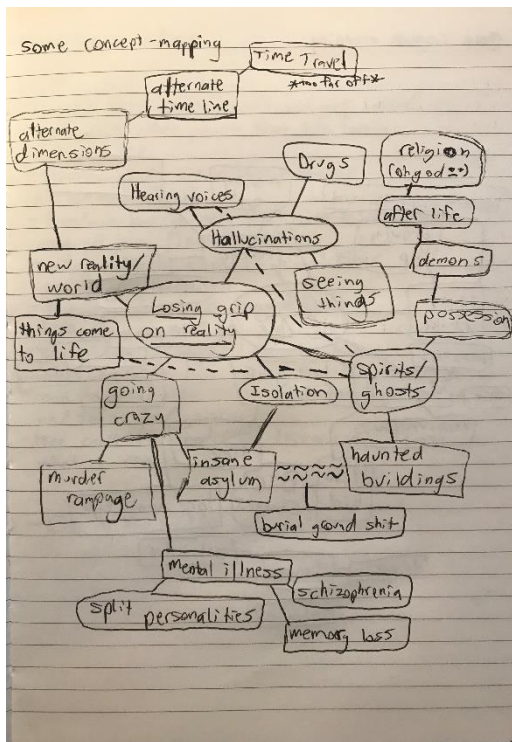 some concept-mapping
Time Travel
*too far off*
alternate
time line
alternate
dimensions
Drugs
religion
(oh god
Hearing voices
Hallucinations
after life
new reality/
world
seeing
things
demons
Losing grip
on reality
possession
things come
to life
spirits/
ghosts
going
crazy
Isolation
murder
rampage
insane
asylum
haunted
buildings
burial ground shit
mental illness
schizophrenia
split personalities
memory loss